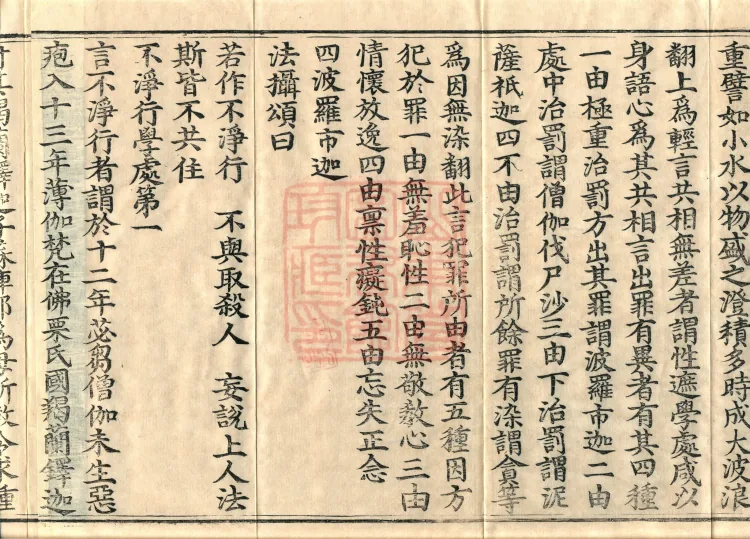 重譬如小水以物盛之澄積多時成大波浪
翻上爲輕言共相無差者謂性遮學處咸以
身語心爲其共相言出罪有異者有其四種
一由極重治罰方出其罪謂波羅市迦二由
處中治罰謂僧伽伐尸沙三由下治罰謂泥
薩祇迦四不由治罰謂所餘罪有染謂貪等
爲因無染翻此言犯罪所由者有五種因方
犯於罪一由無羞恥性二由無敬教心三由
情懷放逸四由稟性癡鈍五由忘失正念
四波羅市迦
法攝頌曰
若作不淨行　不與取殺人　妄說上人法
斯皆不共住
不淨行學處第一
言不淨行者謂於十二年苾芻僧伽未生惡
疱入十三年薄伽梵在佛栗氏國羯蘭鐸迦